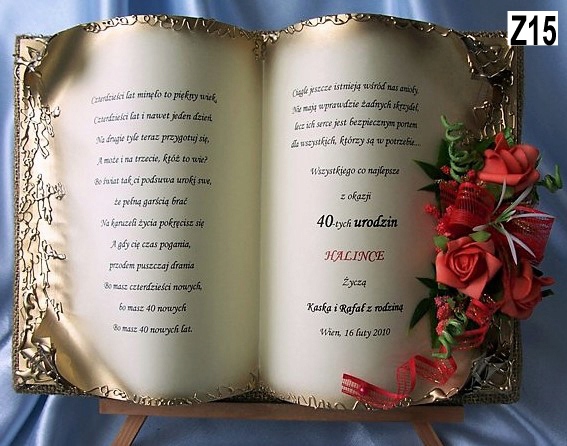 Z15
Czterdzieści lat minęło to piękny wiek,
Czterdzieści lat i nawet jeden dzień.
Na drugie tyle teraz przygotuj się,
A może i na trzecie, któż to wie?
Bo świat tak ci podsuwa uroki swe,
że pełną garścią brać
Na karuzeli życia pokręcisz się
A gdy cię czas pogania,
przodem puszczaj drania
Bo masz czterdzieści nowych,
bo masz 40 nowych
Bo masz 40 nowych lat.
Ciągle jeszcze istnieją wśród nas anioły.
Nie mają wprawdzie żadnych skrzydeł,
lecz ich serce jest bezpiecznym portem
dla wszystkich, którzy są w potrzebie....
Wszystkiego co najlepsze
z okazji
40-tych urodzin
HALINCE
Życzą
Kaska i Rafał z rodziną
Wien, 16 luty 2010